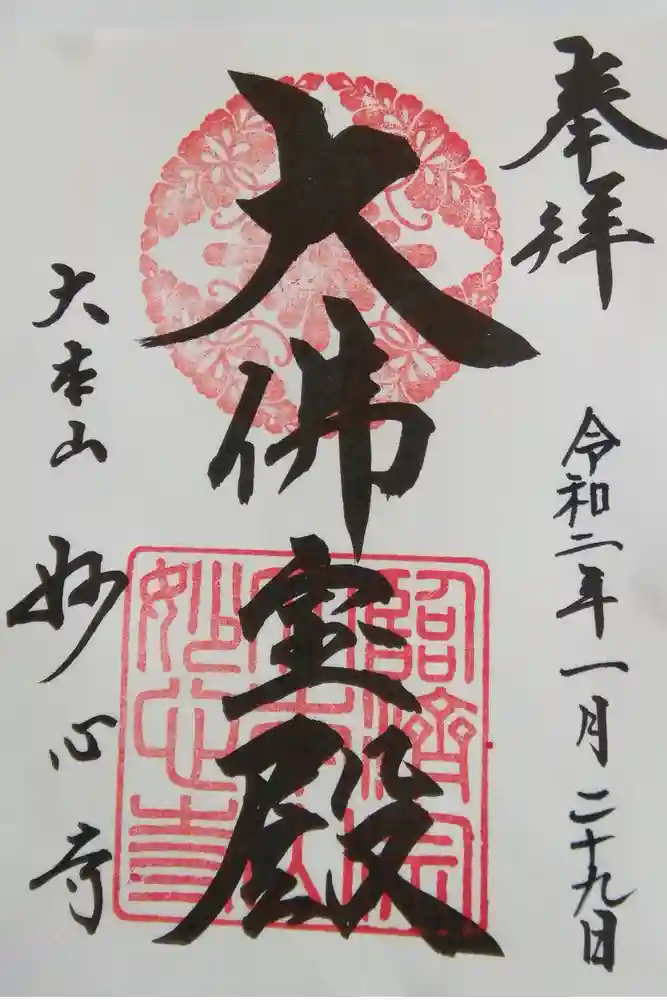 奉拝
令和二年一月二十九日
大佛宝殿
臨済宗
大本山
妙心寺
大本山 妙心寺